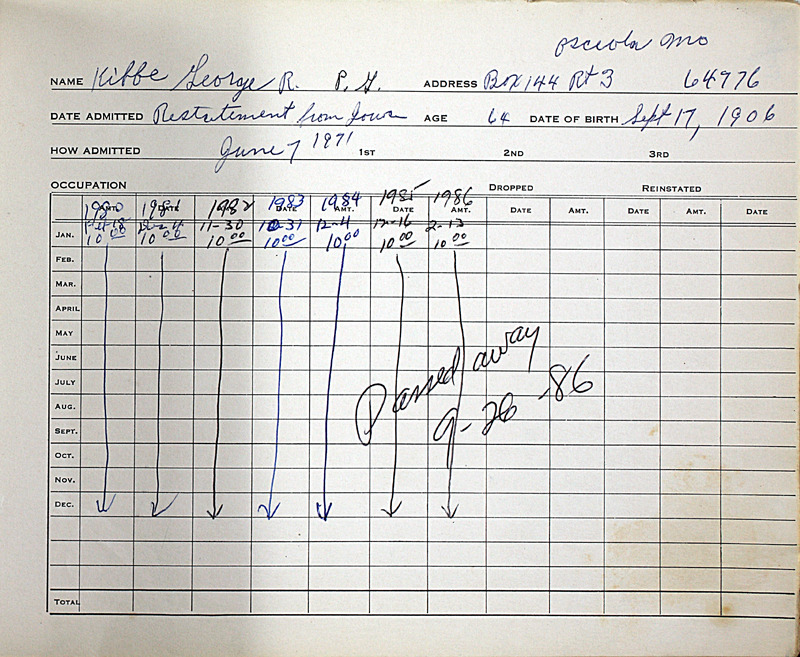 Osceola Mo
NAME Kibbe George R. P. G. ADDRESS Box 144 Rt 3 64776
DATE ADMITTED Restatement from Iowa AGE 64 DATE OF BIRTH Sept 17, 1906
HOW ADMITTED June 7 1971 1ST 2ND 3RD
OCCUPATION DROPPED REINSTATED
1980 1981 1982 1983 1984 1985 1986
AMT. DATE DATE DATE AMT. DATE AMT. DATE AMT. DATE AMT. DATE
JAN. 11-30 10-31 12-4 12-16 2-13
10 00 10 00 10 00 10 00 10 00 10 00 10 00
FEB.
MAR.
APRIL
MAY
JUNE
JULY
AUG.
SEPT.
OCT.
NOV.
DEC.
Passed away
9-26-86
TOTAL